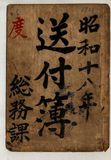 昭和十八年
度
送付簿
総務課